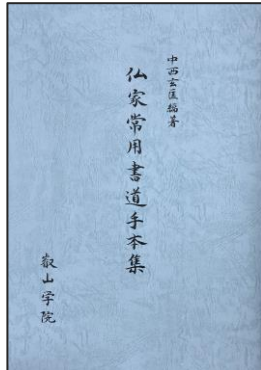 中西玄匡編著
仏家常用書道手本集
叡山学院